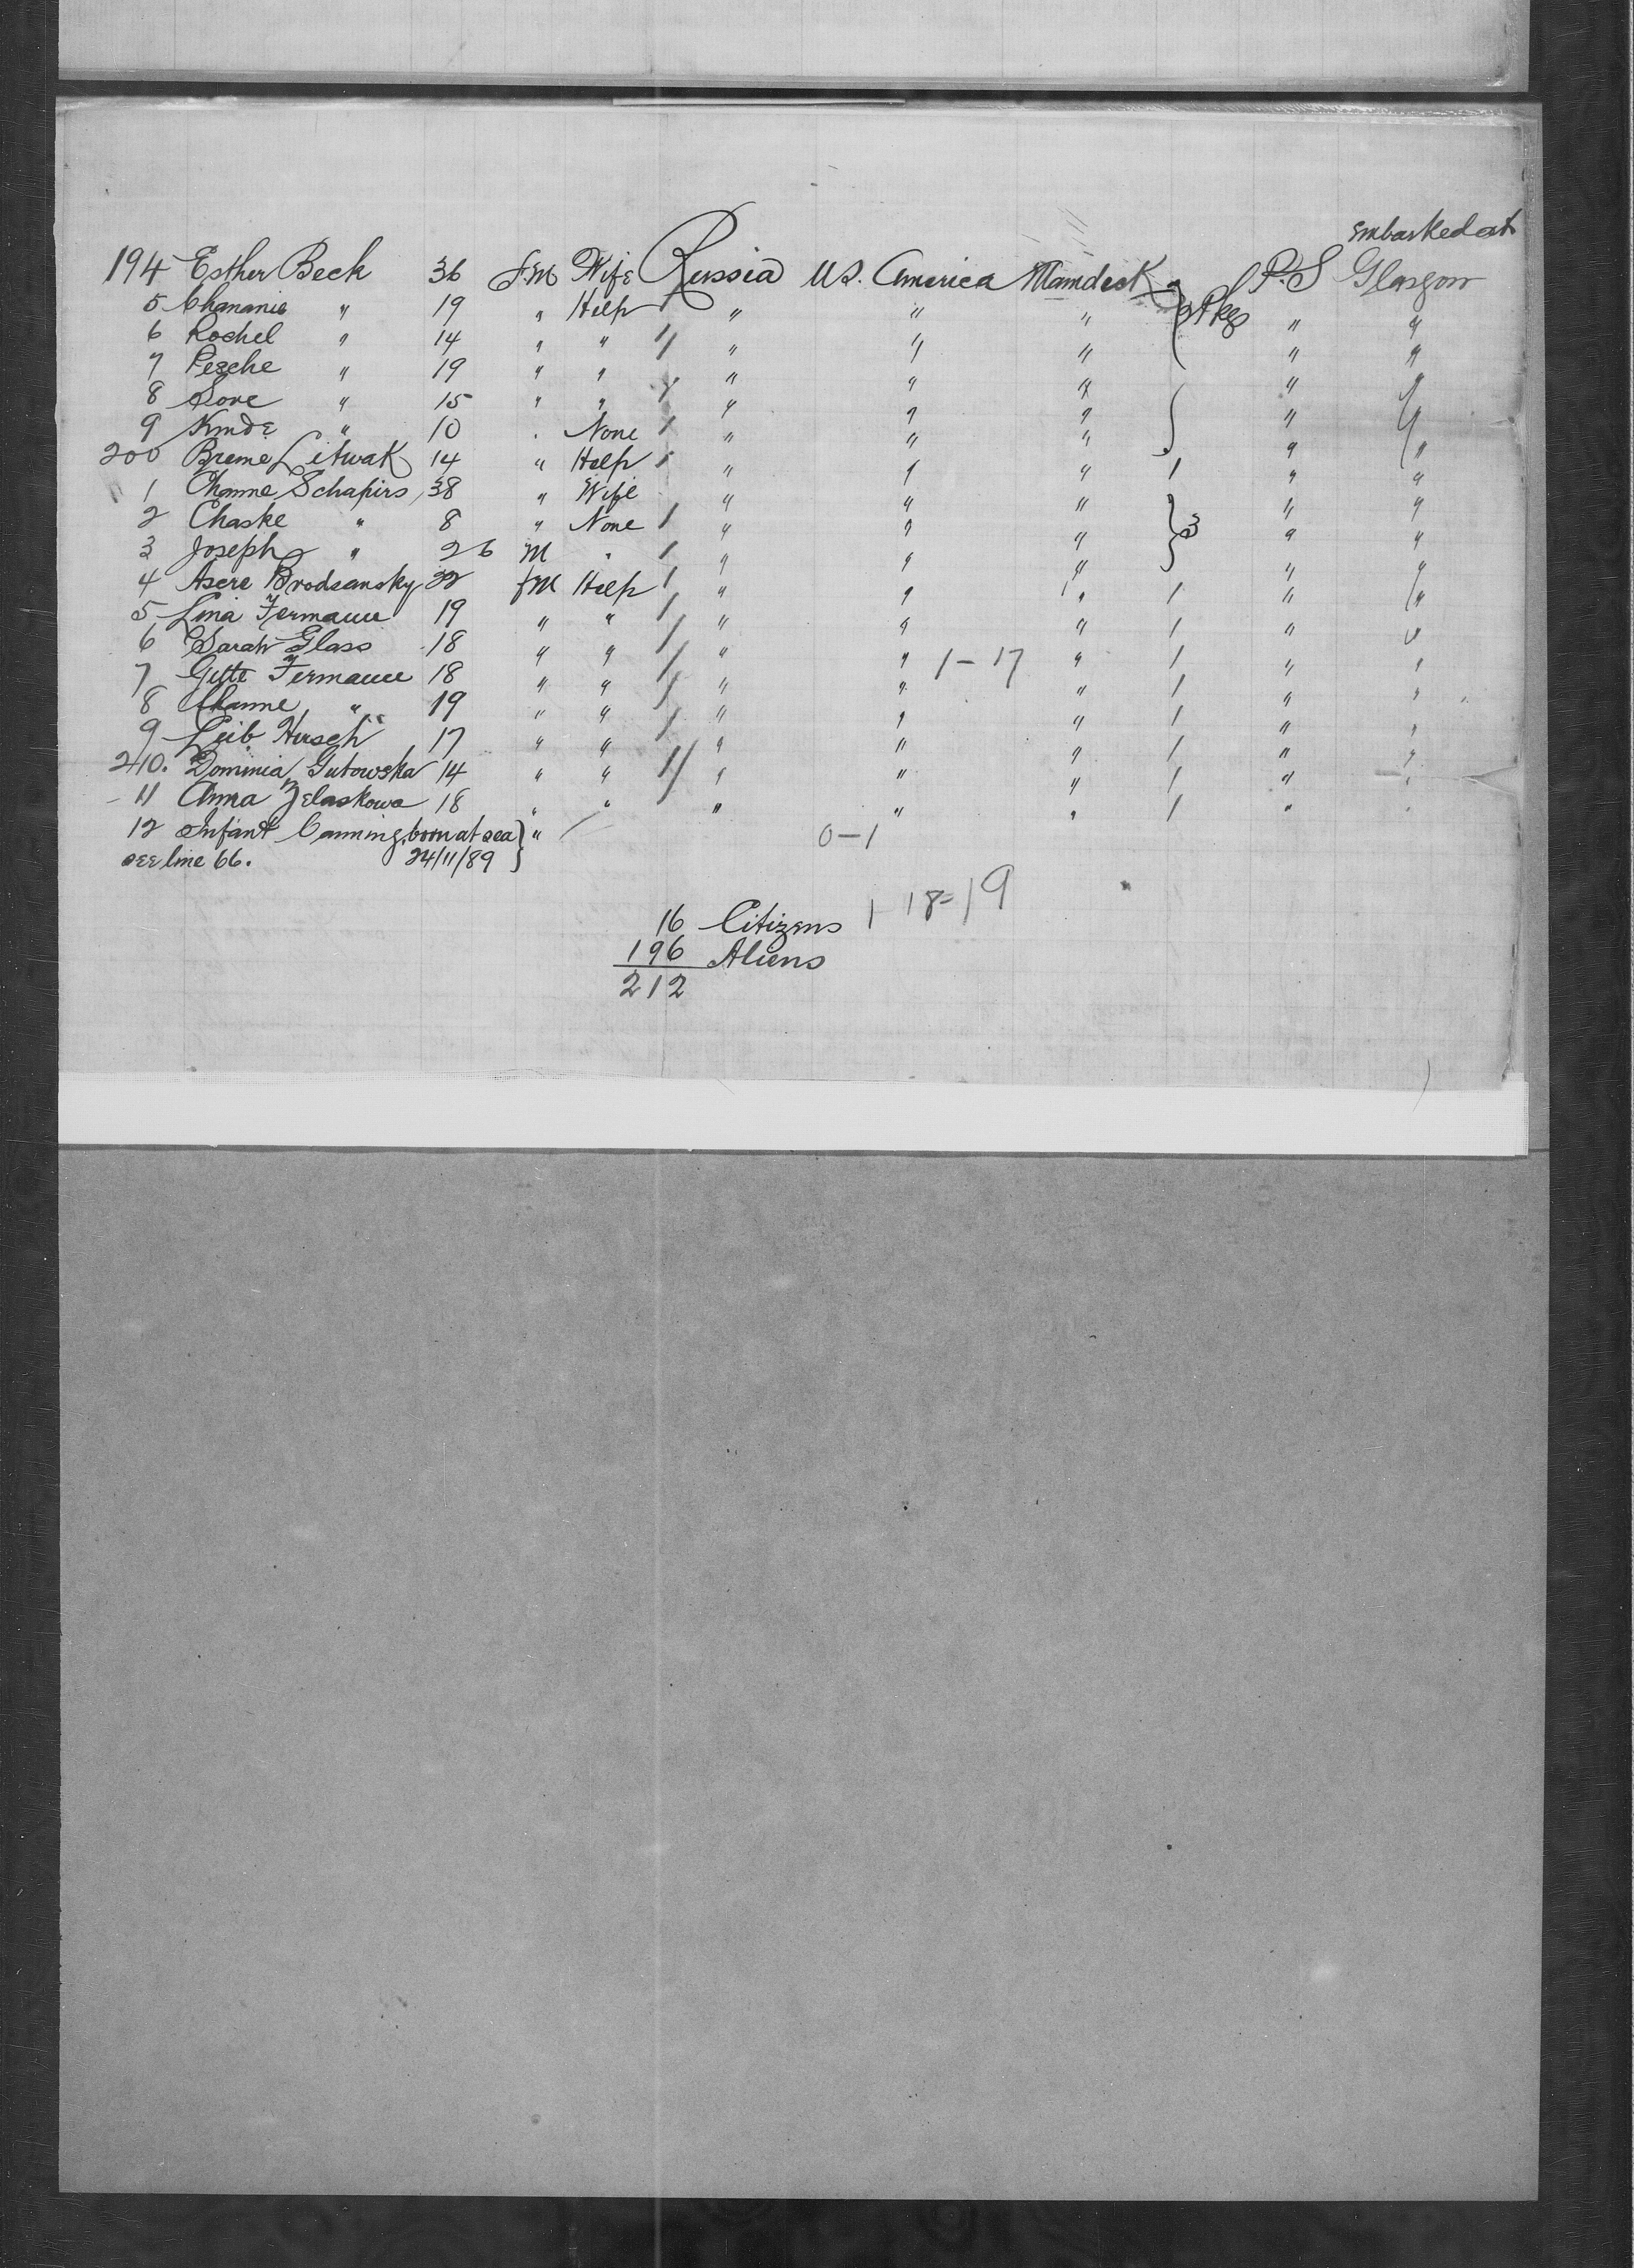 embarked at
194 Esther Beck 36 F.M Wife Russia U.S. America Maindeck 2 Pkgs P.S Glasgow
5 Chananie " 19 " Help " " " " "
6 Rochel " 14 " " 1/ " " " " "
7 Pesche " 19 " " " " " " "
8 Sore " 15 " " " " " " "
9 " 10 " None 1 " " " " "
200 Breme Litwak 14 " Help 1 " " " 1 " "
1 Channe Schapiro 38 " Wife " " " " "
2 Chaske " 8 " None 1 " " " 3 " "
3 Joseph " 26 M " 1 " " " " "
4 Asere Brodsansky 22 fM Help 1 " " " 1 " "
5 Lina Fermann 19 " " 1 " " " 1 " "
6 Sarah Glass 18 " " 1 " " 1-17 " 1 " "
7 Gitte Fermann 18 " " 1 " " " 1 " "
8 Channe " 19 " " 1 " " " 1 " "
9 Leib Hirsch 17 " " 1 " " " 1 " "
210. Dominia Gutowska 14 " " 1/ " " " 1 " "
11 Anna Zelaskowa 18 " " " " " 1 " "
12 Infant Canning, born at sea } " / 0-1
see line 66. 24/11/89
1 18=19
16 Citizens
196 Aliens
212